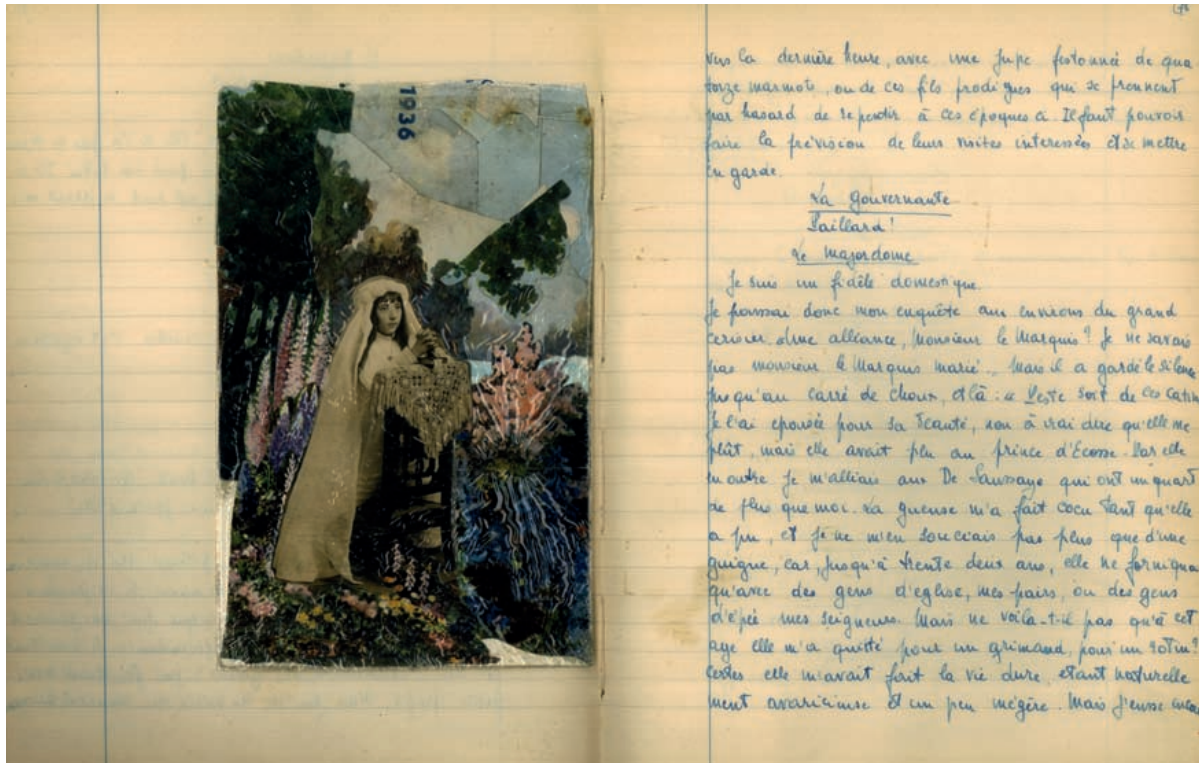 1936
vers la dernière heure, avec une jupe festonnée de qua
torze marmots, ou de ces fils prodigues qui se prennent
par hasard de repentir à ces époques ci. Il faut pouvoir
faire la prévision de leurs visites interessées et se mettre
en garde.
La gouvernante
Paillard!
Le majordome
Je suis un fidèle domestique.
Je poussai donc mon enquête aux environs du grand
cerisier. Une alliance, Monsieur le Marquis? Je ne savais
pas monsieur le Marquis marié.. Mais il a gardé le silence
jusqu'au carré de choux, et là : "Peste soit de ces catins
Je l'ai epousée pour sa beauté, non à vrai dire qu'elle me
plût, mais elle avait plu au prince d'Ecosse. Par elle
en outre je m'alliais aux De Saussaye qui ont un quart
de plus que moi. La gueuse m'a fait cocu tant qu'elle
a pu, et je ne m'en souciais pas plus que d'une
guigne, car, jusqu'à trente deux ans, elle ne forniqua
qu'avec des gens d'eglise, mes pairs, ou des gens
d'épée mes seigneurs. Mais ne voila-t-il pas qu'à cet
age elle m'a quitté pour un grimaud, pour un
Certes elle m'avait fait la vie dure, etant naturelle
ment avaricieuse et un peu mégère. Mais j'eusse